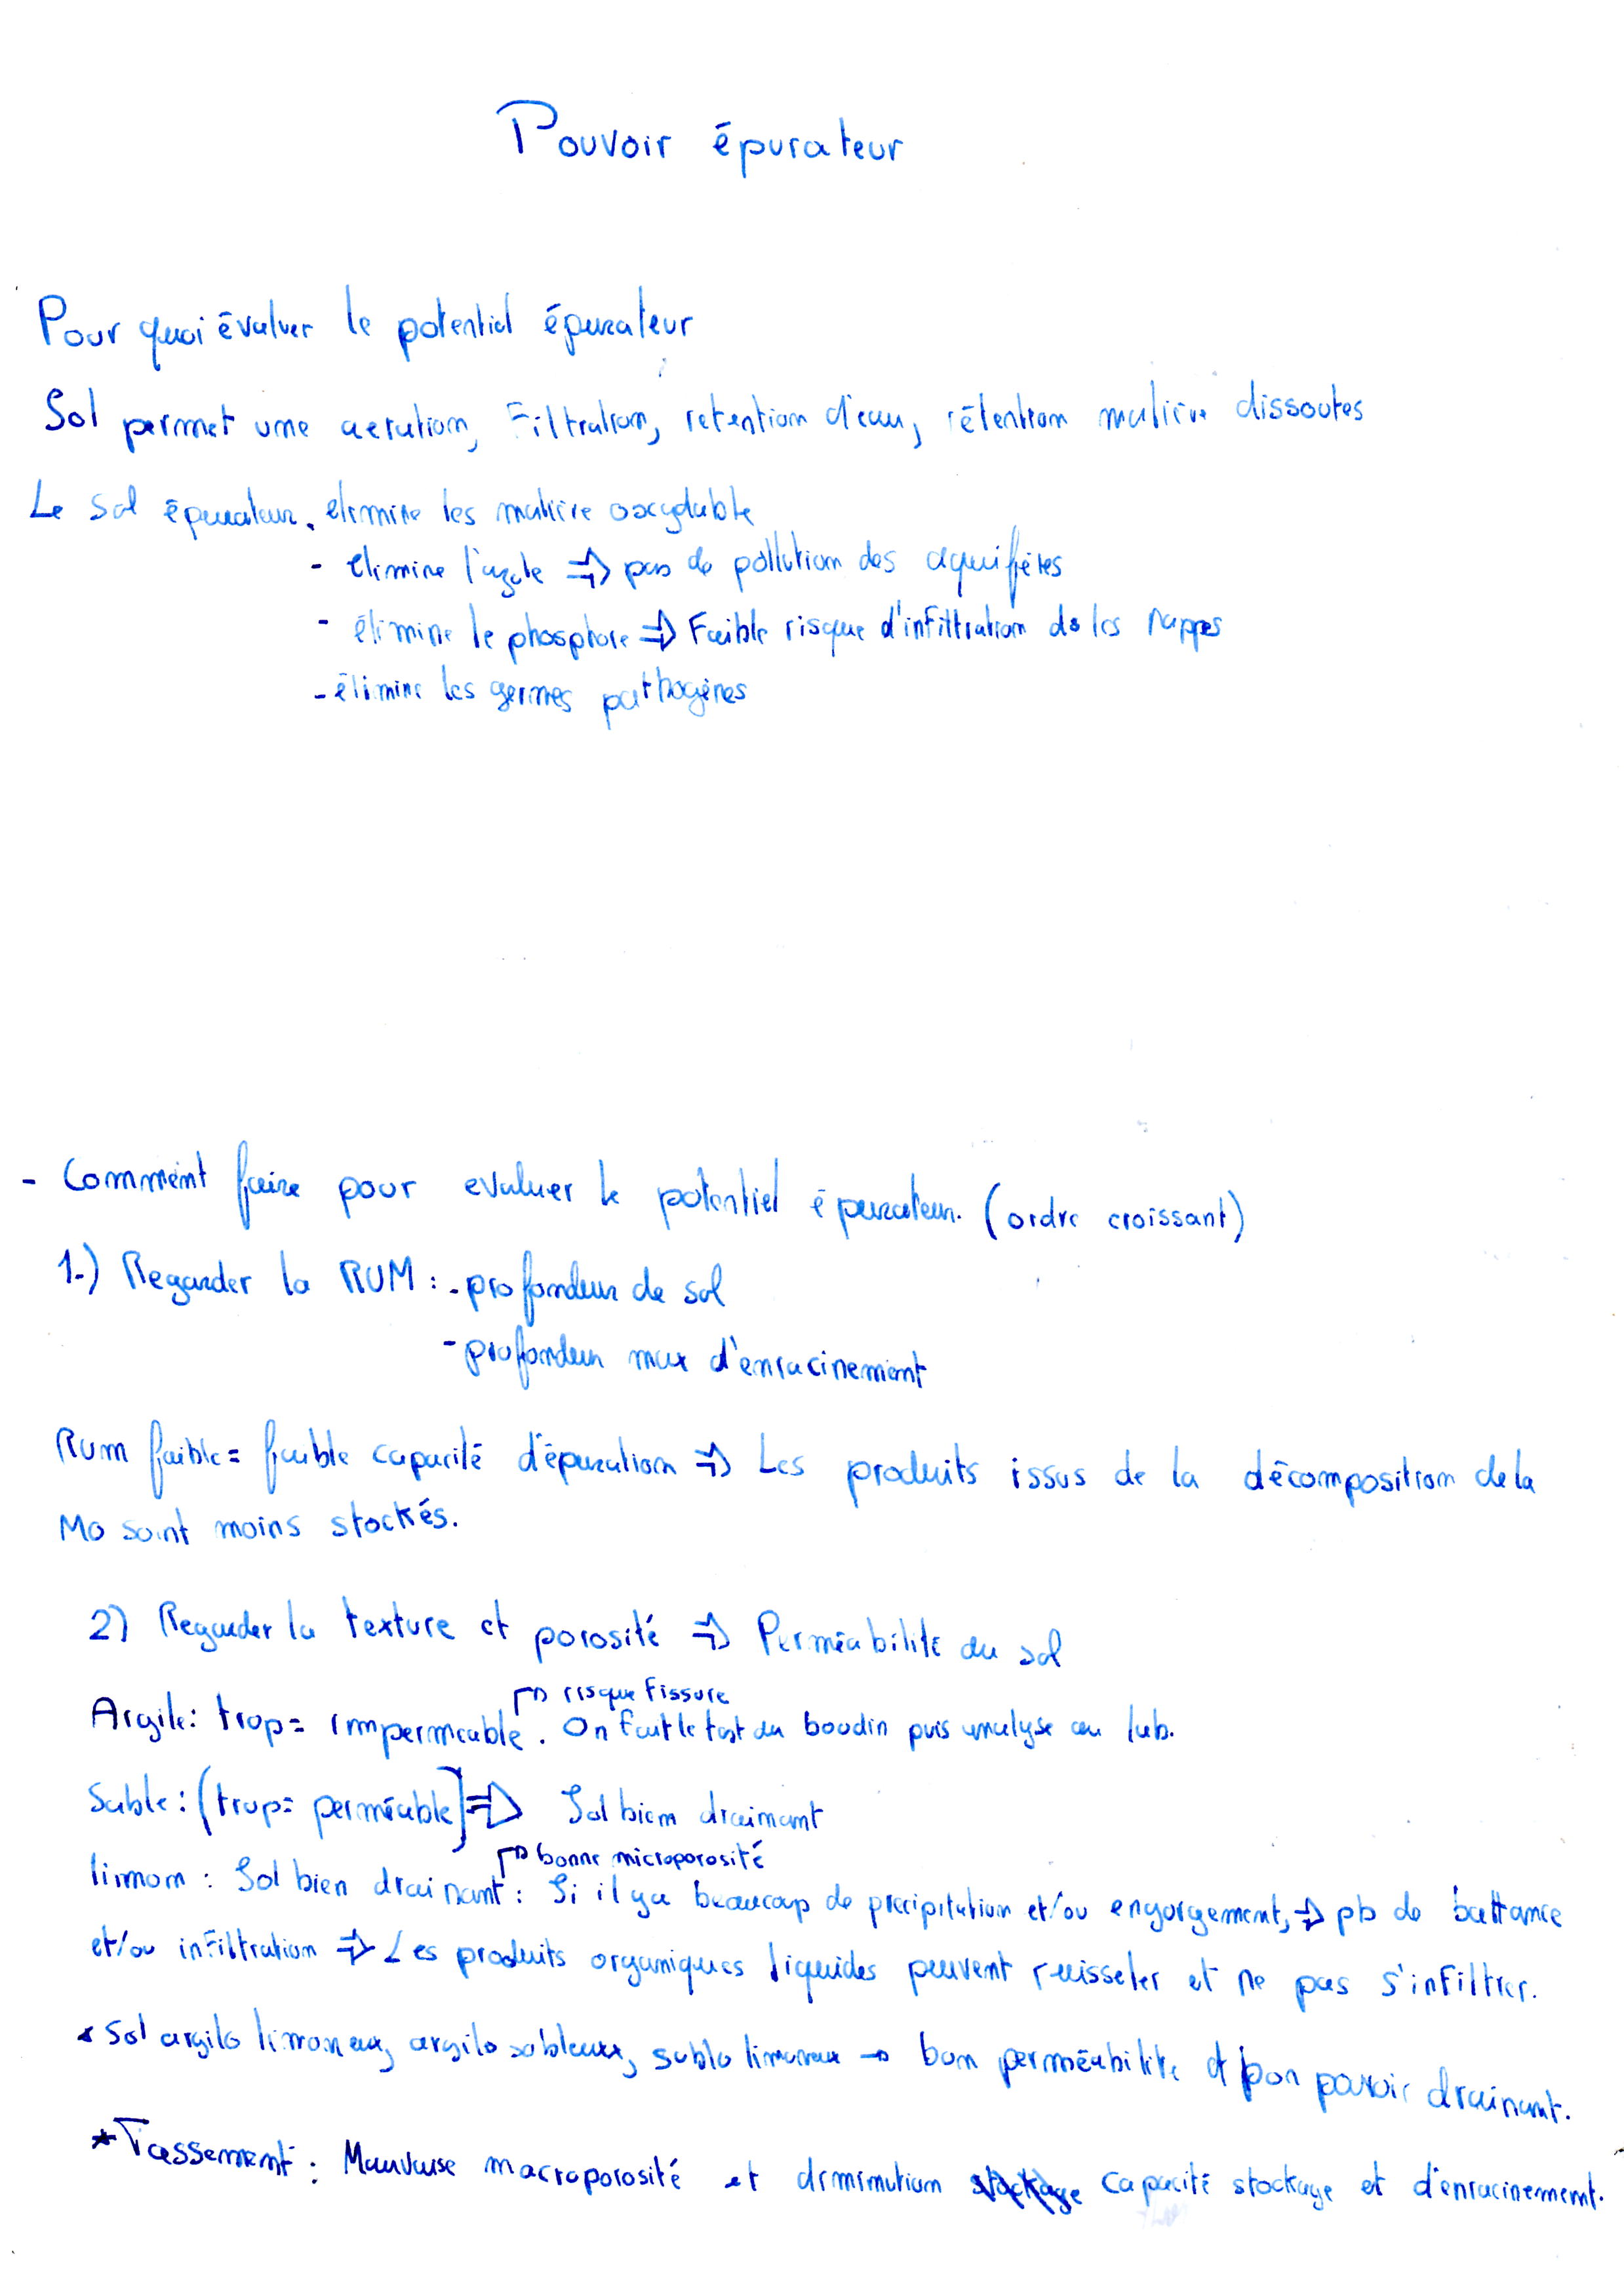 Pouvoir épurateur
Pour quoi évaluer le potentiel épurateur
Sol permet une aeration, Filtration, retention d'eau, rétention matière dissoutes
Le sol épurateur. elimine les matière oxcydable
- elimine l'azote => pas de pollution des aquifères
- élimine le phosphore => Faible risque d'infiltration ds les nappes
- élimine les germes pathogènes
- Comment faire pour evaluer le potentiel épurateur. (ordre croissant)
1-) Regarder la RUM : - profondeur de sol
- profondeur max d'enracinement
Rum faible = faible capacité d'épuration => Les produits issus de la décomposition de la
Mo sont moins stockés.
2) Regarder la texture et porosité => Perméabilité du sol
risque Fissure
Argile : trop = impermeable. On fait le test du boudin puis analyse au lab.
Sable : (trop = perméable) => Sol bien drainant
bonne microporosité
limon : Sol bien drainant : Si il ya beaucoup de precipitation et/ou engorgement, => pb de battance
et/ou infiltration => Les produits organiques liquides peuvent ruisseler et ne pas s'infiltrer.
* Sol argilo limoneux, argilo sableux, sablo limoneux → bon perméabilité et bon pouvoir drainant.
* Tassement : Mauvaise macroporosité et diminution stockage capacité stockage et d'enracinement.